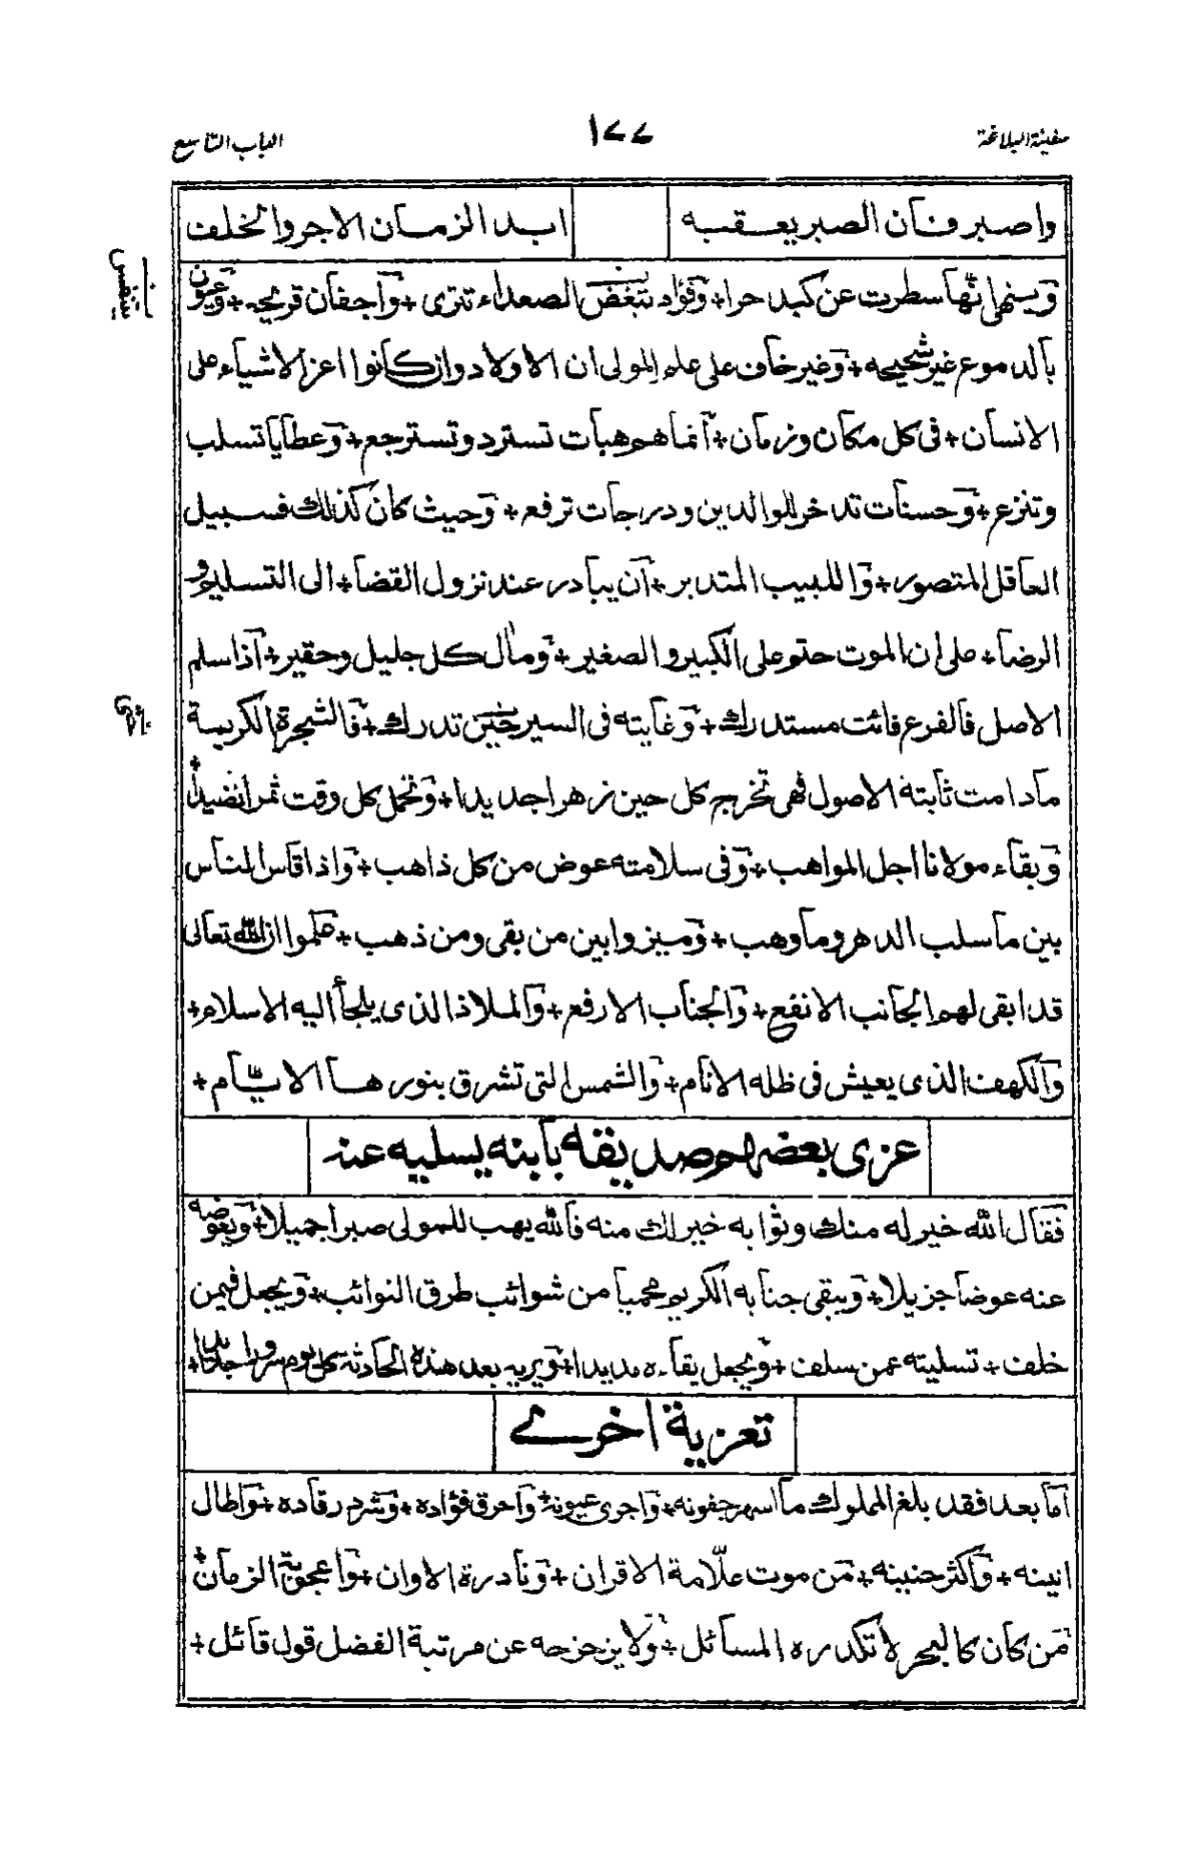 سفينة البلاغة
١٧٧
الباب التاسع
واصبر فان الصبر يعقبه ابد الزمان الاجر والخلف
وينهى انها سطرت عن كبد حرا + وفؤاد بتنغص الصعداء تترى + واجفان قريحه + وعيون
يتنفس
بالدموع غير شحيحه + وغير خاف على علم المولى ان الاولاد وان كانوا اعز الاشياء على
الانسان + فى كل مكان وزمان + انما هم هبات تسترد وتسترجع + وعطايا تسلب
وتنزع + وحسنات تدخر للوالدين ودرجات ترفع + وحيث كان كذلك فسبيل
العاقل المتصور + واللبيب المتدبر + ان يبادر عند نزول القضا + الى التسليم و
الرضا + على ان الموت حتم على الكبير والصغير + ومال كل جليل وحقير + اذا سلم
الاصل فالفرع فائت مستدرك + وغايته فى السير حين تدرك + فالشجرة الكريمة
مادامت ثابته الاصول فهى تخرج كل حين زهرا جديدا + وتحمل كل وقت ثمرا نضيدا +
وبقاء مولانا اجل المواهب + وفى سلامته عوض من كل ذاهب + واذا قاس الناس
بين ما سلب الدهر وما وهب + وميزوا بين من بقى ومن ذهب + علموا ان الله تعالى
قد ابقى لهم الجانب الانفع + والجناب الارفع + والملاذ الذى يلجأ اليه الاسلام +
والكهف الذى يعيش فى ظله الانام + والشمس التى تشرق بنورها الايام +
عزى بعضهم صديقه بابنه يسليه عنه
فقال الله خير له منك وثوابه خير لك منه فالله يهب للمولى صبرا جميلا + ويعوضه
عنه عوضا جزيلا + ويبقى جنابه الكريم محميا من شوائب طرق النوائب + ويجعل فيمن
خلف + تسليته عمن سلف + ويجعل بقاءه مديدا + ويريه بعد هذه الحادثة كل يوم سرورا جديدا +
تعزية اخرى
اما بعد فقد بلغ المملوك ما اسهر جفونه + واجرى عيونه + واحرق فؤاده + وشرد رقاده + واطال
انينه + واكثر حنينه + من موت علّامة الاقران + ونادرة الاوان + واعجوبة الزمان +
من كان كالبحر لا تكدره المسائل + ولا يزحزحه عن مرتبة الفضل قول قائل +